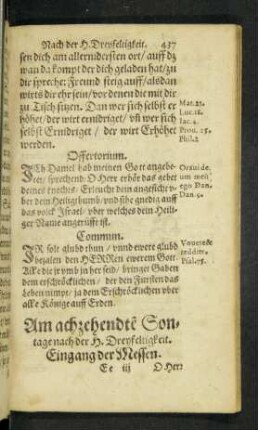 Nach der H. Dreyfeltigkeit. 437
sen dich am allernidersten ort / auff dz
wan da kompt der dich geladen hat / zu
dir spreche: Freund steig auff / alsdan
wirts dir ehr sein / vor denen die mit dir
zu Tisch sitzen. Dan wer sich selbst er
höhet / der wirt ernidriget / vñ wer sich
selbst Ernidriget / der wirt Erhöhet
werden.
Mat. 23.
Luc. 18.
Iac. 4.
Prou. 25.
Phil. 2
Offertorium.
Ich Daniel hab meinen Gott angebe-
ten / sprechend: O Herr erhör das gebet
deines knechts / Erleucht dein angesicht v-
ber dein Heiligthumb / vnd sihe gnedig auff
das volck Israel / vber welches dein Heili-
ger Name angerufft ist.
Dan. 9.
Commun.
Ir solt glubd thun / vnnd ewere glubd
bezalen den HERRen ewerem Gott /
Alle die jr vmb jn her seid / bringet Gaben
dem erschröcklichen / der den Fürsten das
Leben nimpt / ja dem Erschröcklichen vber
alle Könige auff Erden.
Psal. 75.
Am achzehendtē Son-
tage nach der H. Dreyfeltigkeit.
Eingang der Messen.
Ee iij O Herr